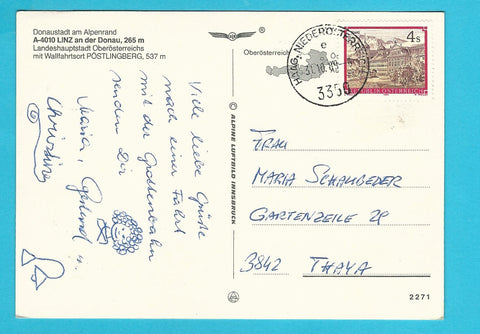 Donaustadt am Alpenrand
A-4010 LINZ an der Donau, 265 m
Landeshauptstadt Oberösterreichs
mit Wallfahrtsort PÖSTLINGBERG, 537 m
Oberösterreich
HAAG, NIEDERÖSTERREICH
e
3350
4 s
REPUBLIK ÖSTERREICH
© ALPINE LUFTBILD INNSBRUCK
Viele liebe Grüße
nach einer Fahrt
mit der Grottenbahn
senden Dir
Maria, Gerhard u.
Christine
FRAU
MARIA SCHAUBEDER
GARTENZEILE 29
3842 THAYA
2271